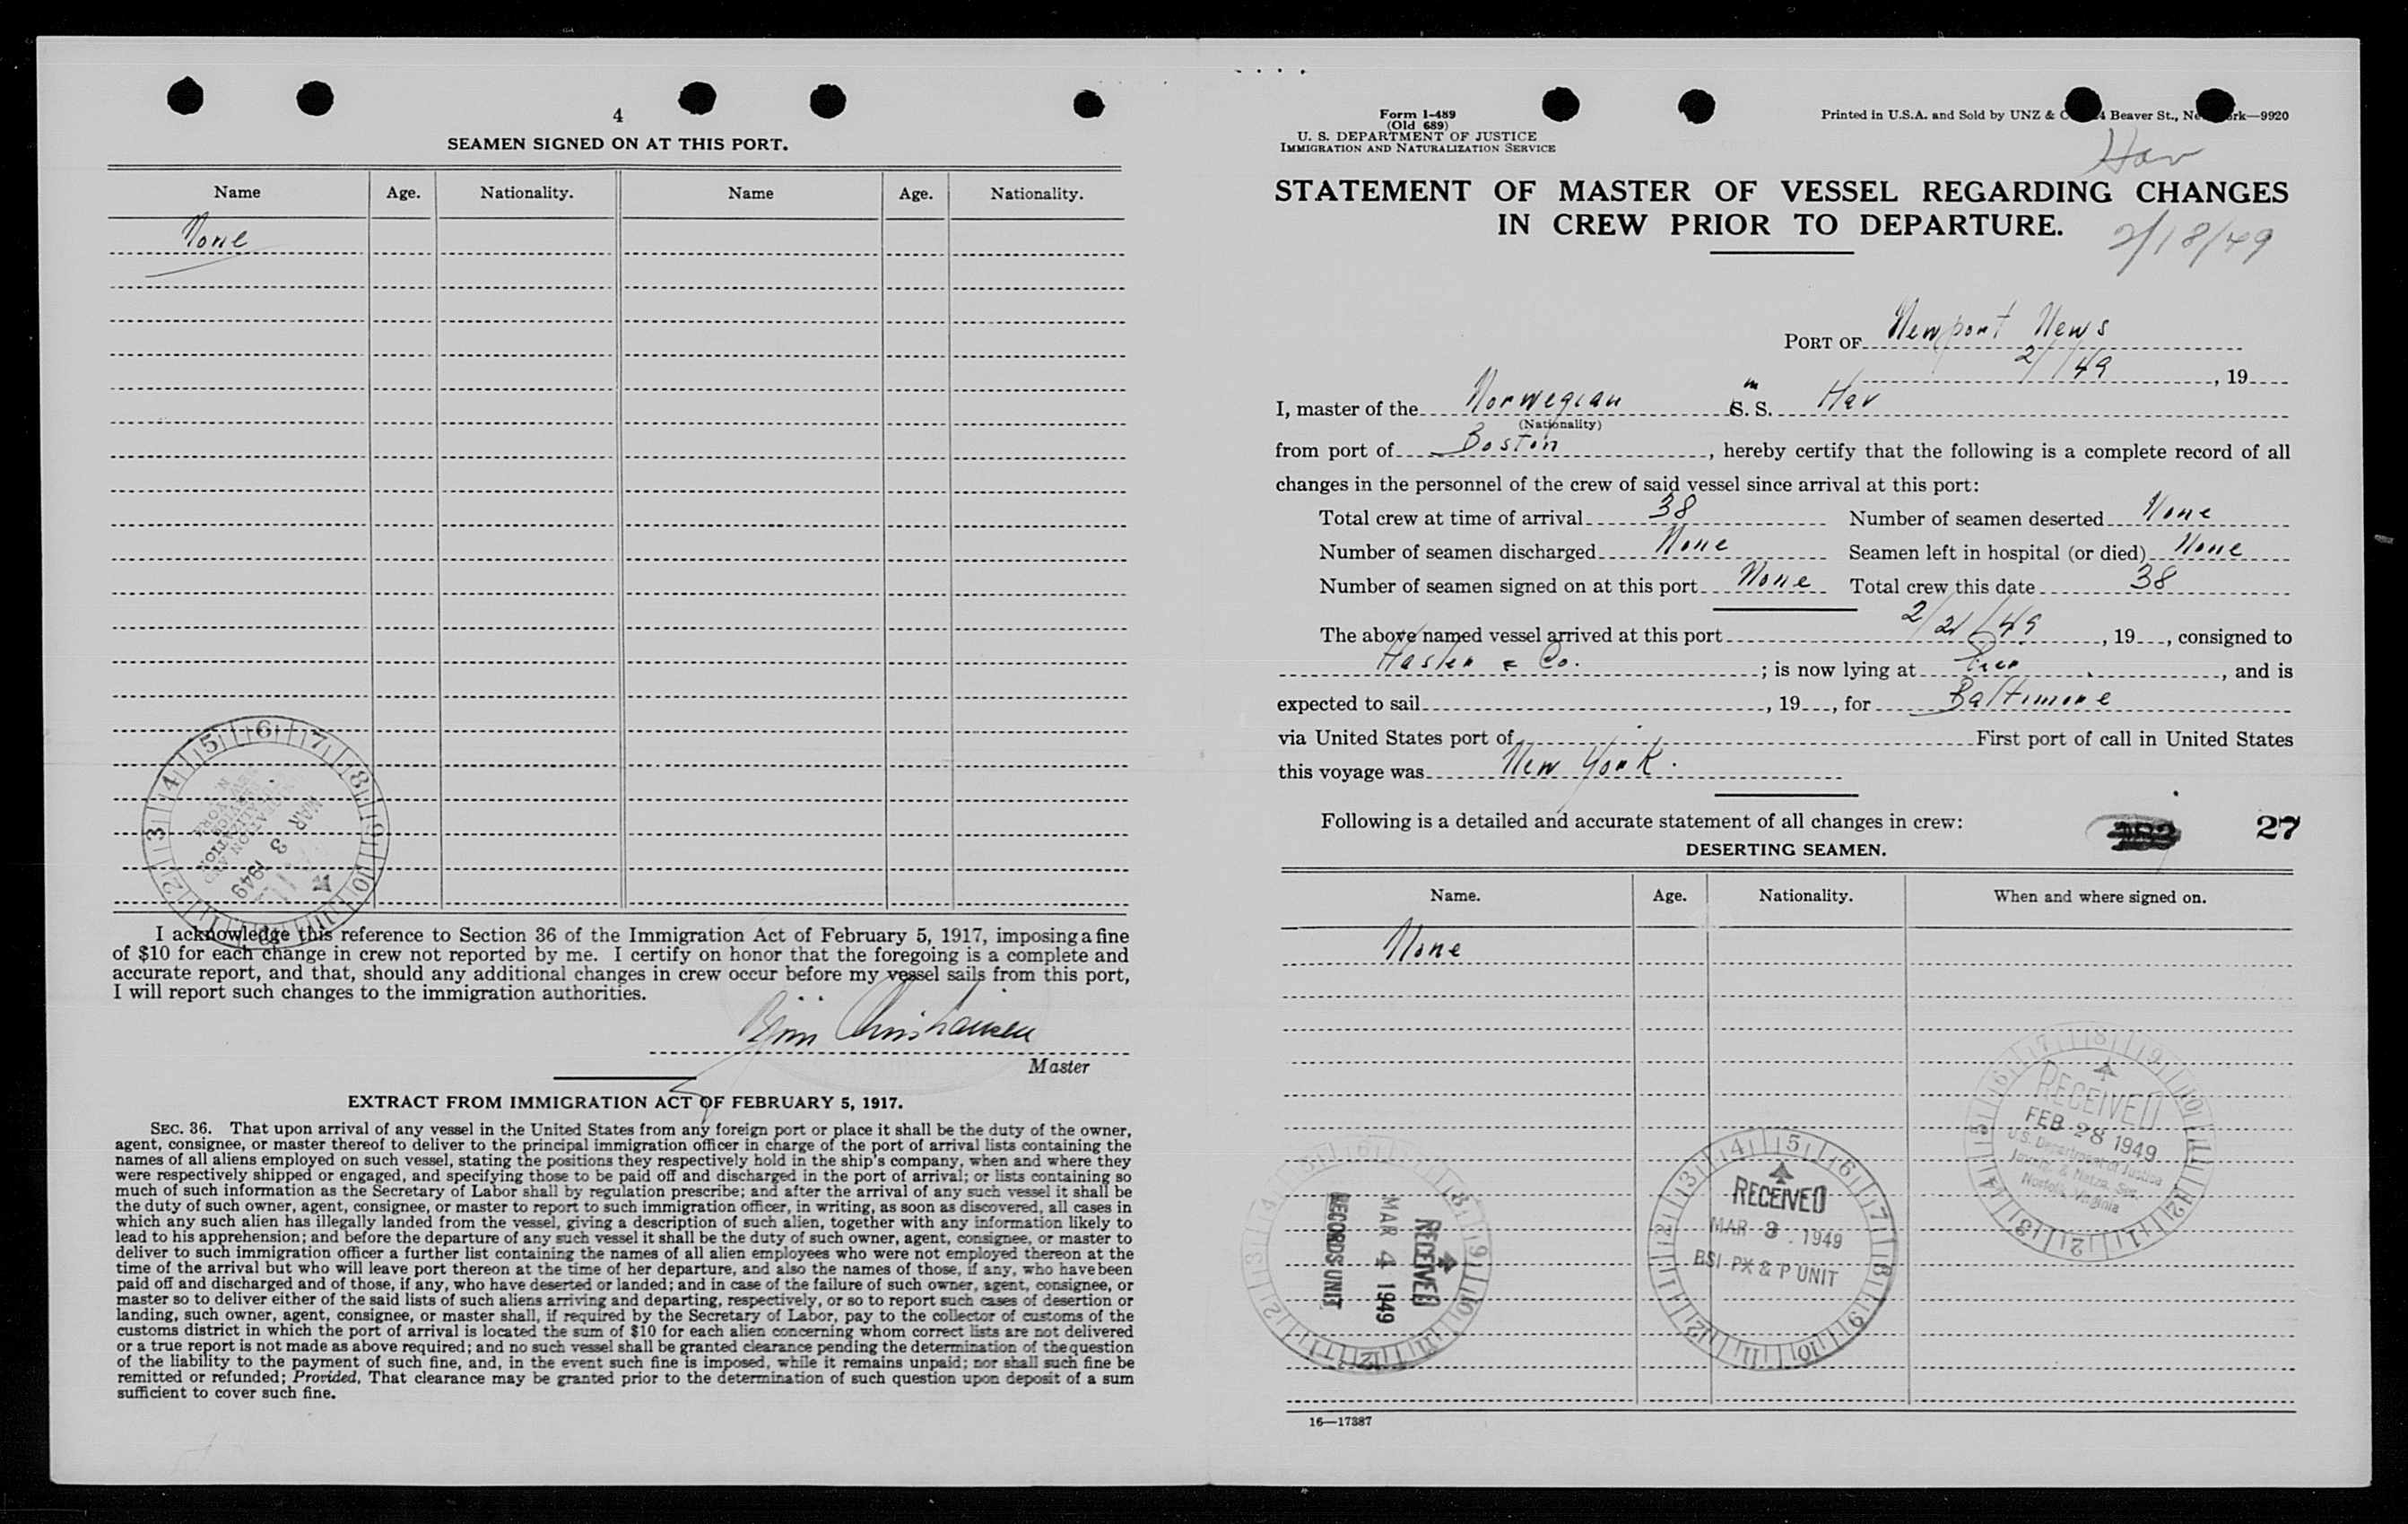 4
SEAMEN SIGNED ON AT THIS PORT.
Name Age. Nationality. Name Age. Nationality.
None
5 6 7 8 9 10 11 1 2 3 4
MAR 3 1949
I acknowledge this reference to Section 36 of the Immigration Act of February 5, 1917, imposing a fine
of $10 for each change in crew not reported by me. I certify on honor that the foregoing is a complete and
accurate report, and that, should any additional changes in crew occur before my vessel sails from this port,
I will report such changes to the immigration authorities.
Master
EXTRACT FROM IMMIGRATION ACT OF FEBRUARY 5, 1917.
SEC. 36. That upon arrival of any vessel in the United States from any foreign port or place it shall be the duty of the owner,
agent, consignee, or master thereof to deliver to the principal immigration officer in charge of the port of arrival lists containing the
names of all aliens employed on such vessel, stating the positions they respectively hold in the ship's company, when and where they
were respectively shipped or engaged, and specifying those to be paid off and discharged in the port of arrival; or lists containing so
much of such information as the Secretary of Labor shall by regulation prescribe; and after the arrival of any such vessel it shall be
the duty of such owner, agent, consignee, or master to report to such immigration officer, in writing, as soon as discovered, all cases in
which any such alien has illegally landed from the vessel, giving a description of such alien, together with any information likely to
lead to his apprehension; and before the departure of any such vessel it shall be the duty of such owner, agent, consignee, or master to
deliver to such immigration officer a further list containing the names of all alien employees who were not employed thereon at the
time of the arrival but who will leave port thereon at the time of her departure, and also the names of those, if any, who have been
paid off and discharged and of those, if any, who have deserted or landed; and in case of the failure of such owner, agent, consignee, or
master so to deliver either of the said lists of such aliens arriving and departing, respectively, or so to report such cases of desertion or
landing, such owner, agent, consignee, or master shall, if required by the Secretary of Labor, pay to the collector of customs of the
customs district in which the port of arrival is located the sum of $10 for each alien concerning whom correct lists are not delivered
or a true report is not made as above required; and no such vessel shall be granted clearance pending the determination of the question
of the liability to the payment of such fine, and, in the event such fine is imposed, while it remains unpaid; nor shall such fine be
remitted or refunded; Provided, That clearance may be granted prior to the determination of such question upon deposit of a sum
sufficient to cover such fine.
Form I-489
(Old 689)
U. S. DEPARTMENT OF JUSTICE
IMMIGRATION AND NATURALIZATION SERVICE
Printed in U.S.A. and Sold by UNZ & Beaver St., —9920
Hav
STATEMENT OF MASTER OF VESSEL REGARDING CHANGES
IN CREW PRIOR TO DEPARTURE.
2/18/49
PORT OF Newport News
2/ /49, 19
I, master of the Norwegian m S. S. Hav
(Nationality)
from port of Boston, hereby certify that the following is a complete record of all
changes in the personnel of the crew of said vessel since arrival at this port:
Total crew at time of arrival 38 Number of seamen deserted None
Number of seamen discharged None Seamen left in hospital (or died) None
Number of seamen signed on at this port None Total crew this date 38
The above named vessel arrived at this port 2/21/49, 19, consigned to
& Co.; is now lying at Pier, and is
expected to sail, 19, for Baltimore
via United States port of First port of call in United States
this voyage was New York.
Following is a detailed and accurate statement of all changes in crew:
27
DESERTING SEAMEN.
Name. Age. Nationality. When and where signed on.
None
RECEIVED
FEB 28 1949
U.S. Department of Justice
Immig. & Natzn. Ser.
Norfolk, Virginia
RECEIVED
MAR 4 1949
RECORDS UNIT
RECEIVED
MAR 3 1949
BSI-PX & P UNIT
16—17387